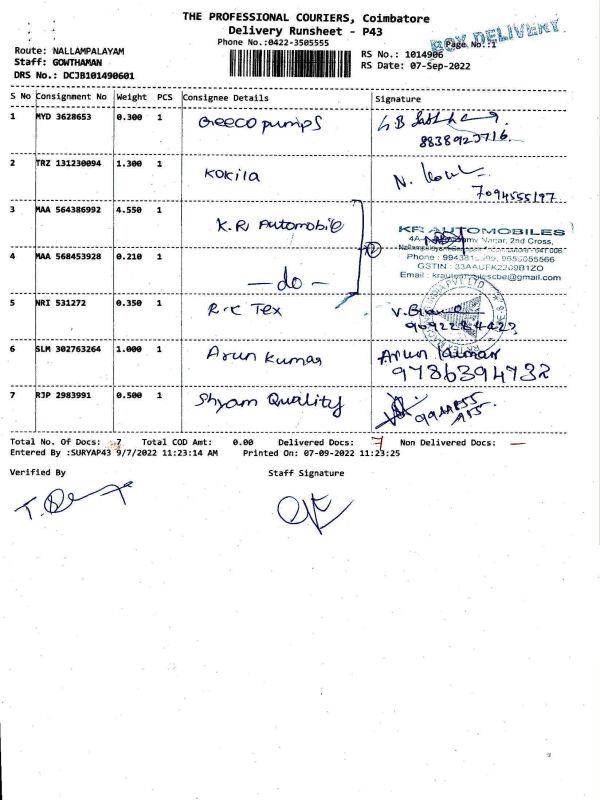 THE PROFESSIONAL COURIERS, Coimbatore
Delivery Runsheet - P43
Phone No.:0422-3505555
BOX DELIVERY
Page No.:1
Route: NALLAMPALAYAM
RS No.: 1014906
Staff: GOWTHAMAN
RS Date: 07-Sep-2022
DRS No.: DCJB101490601
S No Consignment No Weight PCS Consignee Details Signature
1 MYD 3628653 0.300 1 Greeco pumps
2 TRZ 131230094 1.300 1 Kokila N.
7094555197
3 MAA 564386992 4.550 1 K.R. Automobile
KR AUTOMOBILES
Nagar, 2nd Cross,
4 MAA 568453928 0.210 1 - do -
9655055566
GSTIN : 33AAUFK2209B1ZO
Email :
5 NRI 531272 0.350 1 R.K Tex V.
6 SLM 302763264 1.000 1 Arun Kumar Arun Kumar
9786394732
7 RJP 2983991 0.500 1 Shyam Quality
Total No. Of Docs: 7 Total COD Amt: 0.00 Delivered Docs: 7 Non Delivered Docs: —
Entered By :SURYAP43 9/7/2022 11:23:14 AM Printed On: 07-09-2022 11:23:25
Verified By Staff Signature